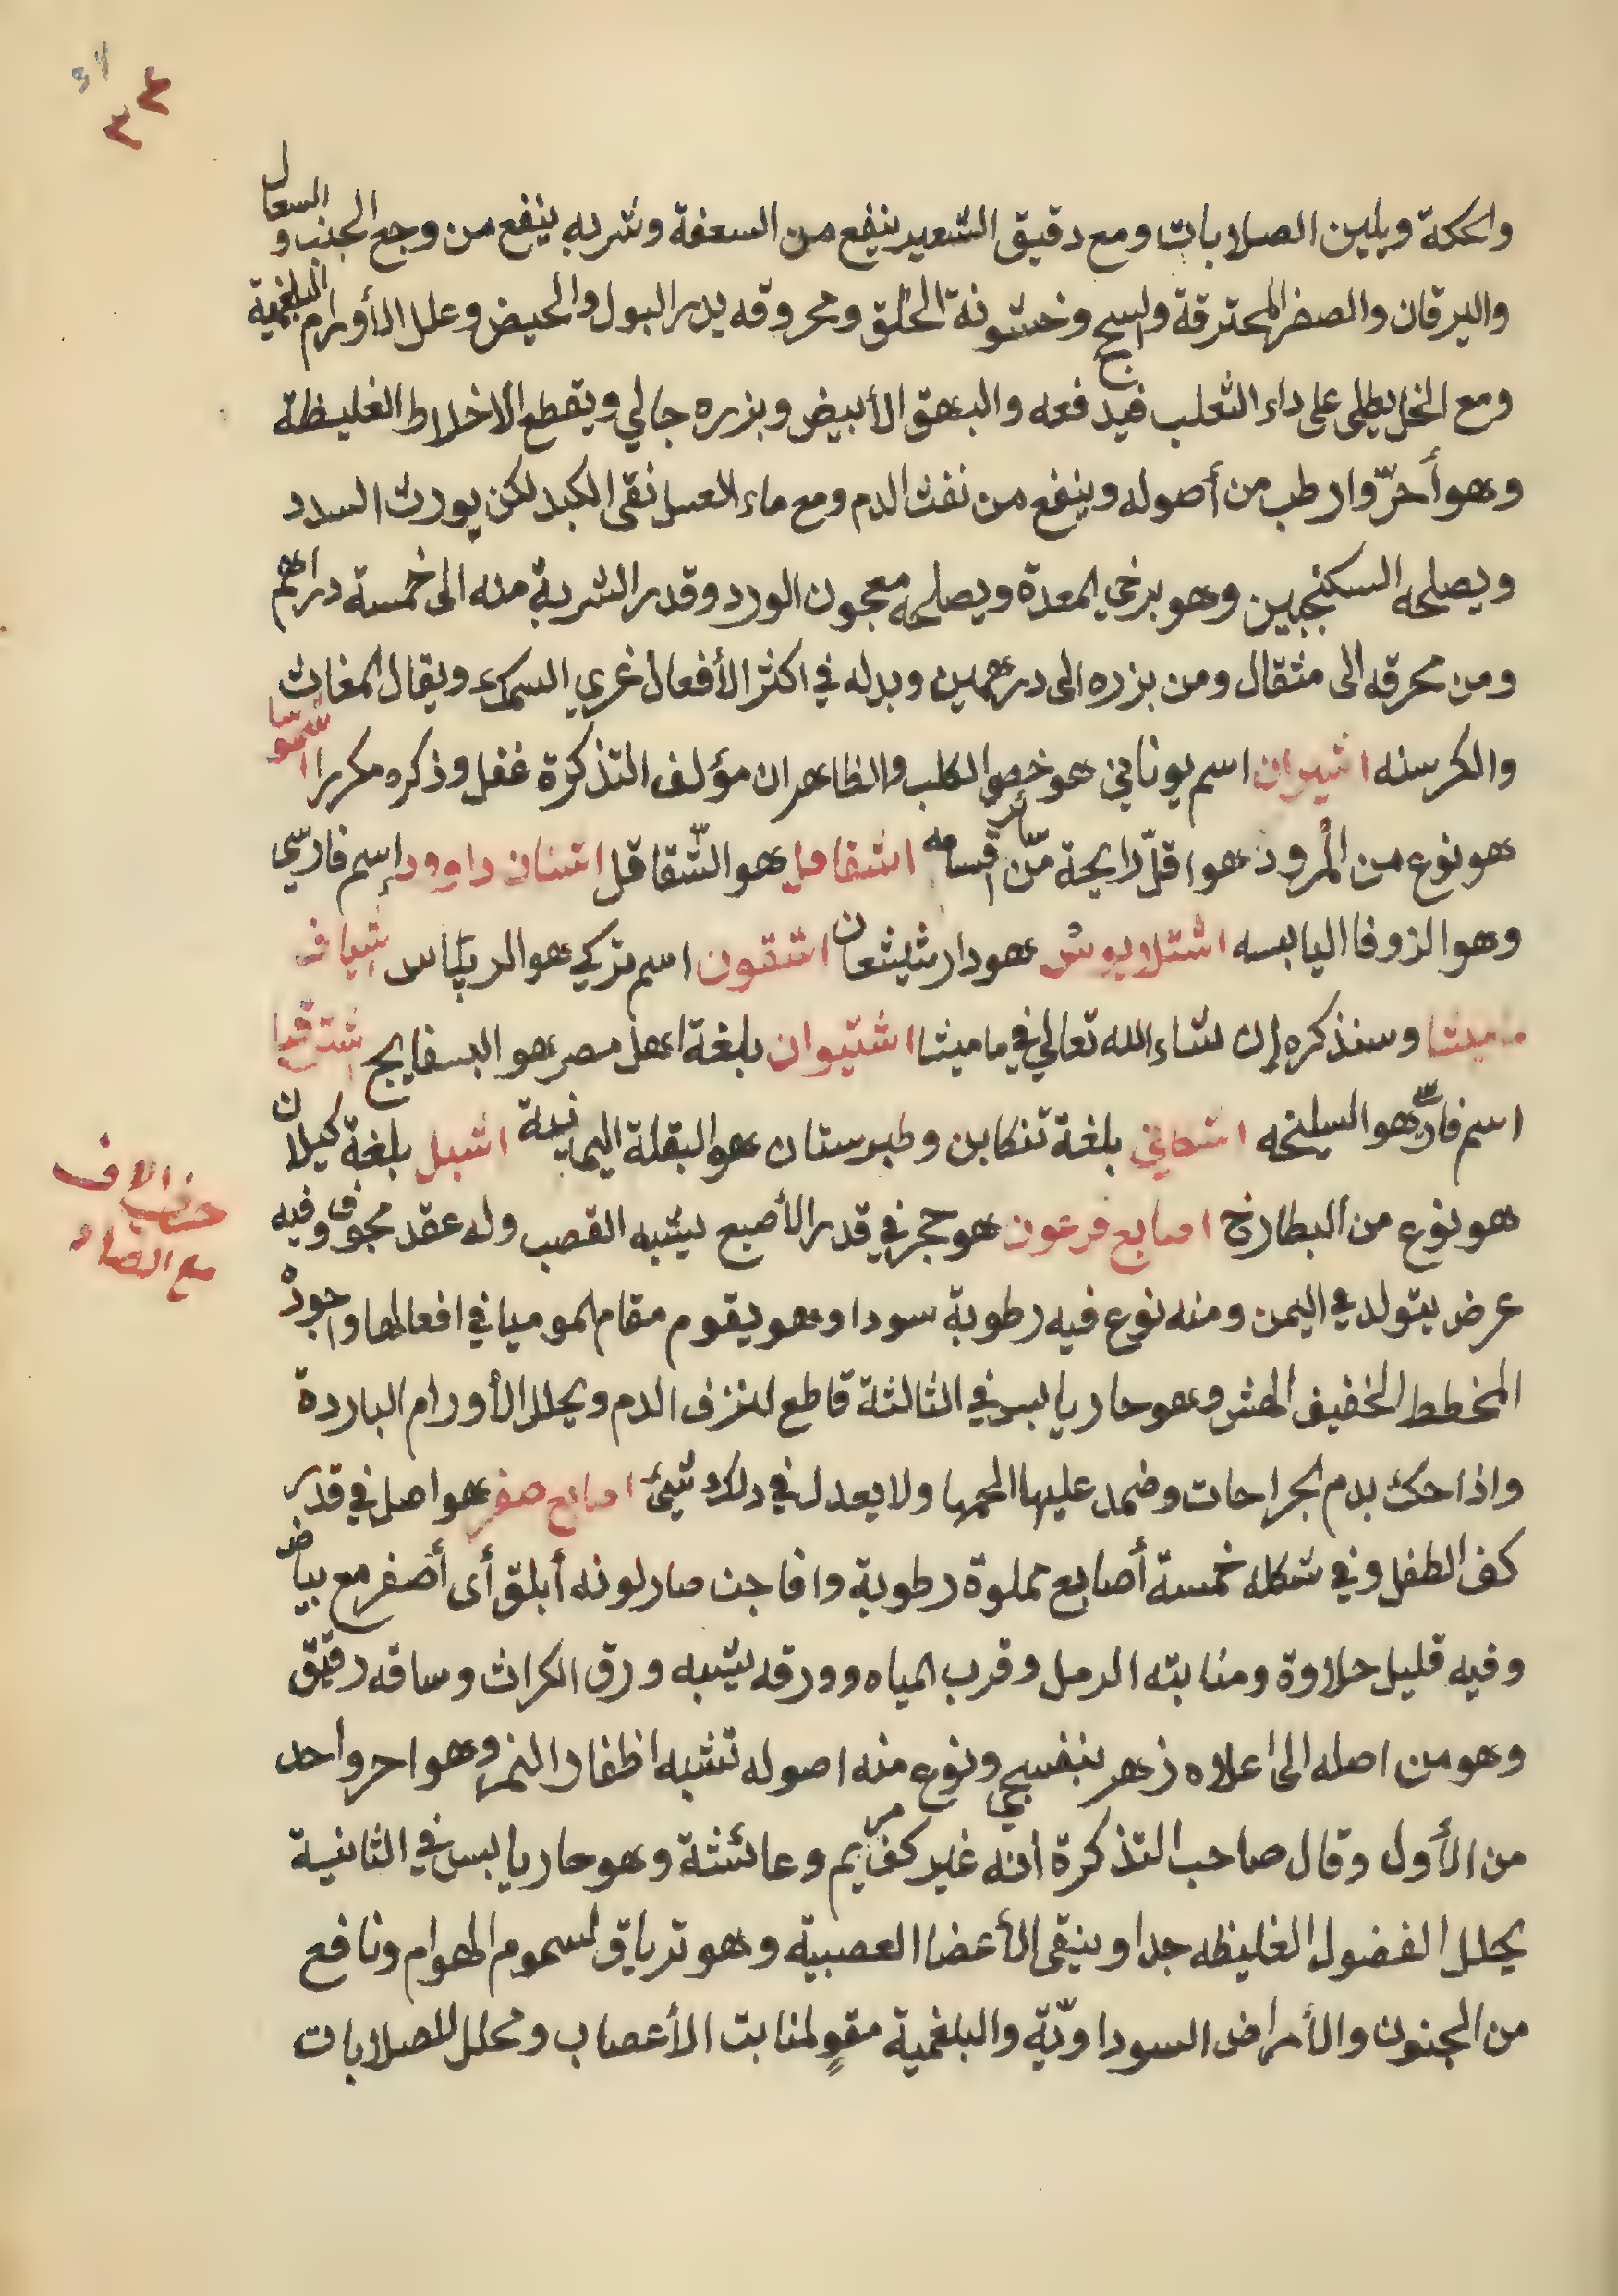 ٣٤
والحكة ويلين الصلابات ومع دقيق الشعير ينفع من السعفة وشربه ينفع من وجع الجنب والسعال
واليرقان والصفرالمحترقة والسحج وخشونة الحلق ومحروقه يدر البول والحيض وعلل الأورام البلغمية
ومع الخل يطلى على داء الثعلب فيدفعه والبهق الأبيض وبزره جالي ويقطع الاخلاط الغليظة
وهو أحرّ وارطب من أصوله وينفع من نفث الدم ومع ماء العسل نقى الكبد لكن يورث السدد
ويصلحه السكنجبين وهو يرخي المعدة ويصلحه معجون الورد وقدر الشربة منه الى خمسة دراهم
ومن محرقه الى مثقال ومن بزره الى درهمين وبدله في اكثر الأفعال غري السمك ويقال المغاث
والكرسنه اشيران اسم يوناني هو خصو الكلب والظاهر ان مؤلف التذكرة غفل وذكره مكررا
هو نوع من المرو وهو اقلّ رايحة من سائر اقسامه اشقاقل هو الشّقاقل اشنان داوود إسم فارسّي
وهو الزوفا اليابسه اشتلايوس هو دارشيشعان اشقون اسم تركي هو الريباس شياف
ماميثا وسنذكره إن شاء الله تعالى في ماميثا اشتيوان بلغة اهل مصر هو البسفايج
اسم فارسّي هو السليخه اشكاني بلغة تنكابن وطبرستان هو البقلة اليمانية اشبل بلغة كيلان
هو نوع من البطارخ اصابع فرعون هو حجر في قدر الأصبع يشبه القصب وله عقد مجوف وفيه
عرض يتولد في اليمن ومنه نوع فيه رطوبة سودا وهو يقوم مقام الموميا في افعالها واجوده
المخطط الخفيف الهش وهو حار يابس في الثالثة قاطع لنزف الدم ويحلل الأورام الباردة
واذا حك بدم الجراحات وضمد عليها الحمها ولا يعدل في ذلك شئ اصابع صفر هو اصل في قدر
كف الطفل وفي شكله خمسة أصابع مملوة رطوبة وافا جن صار لونه أبلق أى أصفر مع بياض
وفيه قليل حلاوة ومنابته الرمل وقرب المياه وورقه يشبه ورق الكراث وساقه رقيق
وهو من اصله الى اعلاه زهر بنفسجي ونوع منه اصوله تشبه اظفار النمر وهو احر واحد
من الأول وقال صاحب التذكرة انه غير كف مريم وعائشة وهو حار يابس في الثانية
يحلل الفضول الغليظه جدا وينقى الأعضا العصبية وهو ترياق لسموم الهوام ونافع
من الجنون والأمراض السوداويّة والبلغمية مقوٍ لمنابت الأعصاب ومحلل للصلابات
حرف الالف
مع الصاد